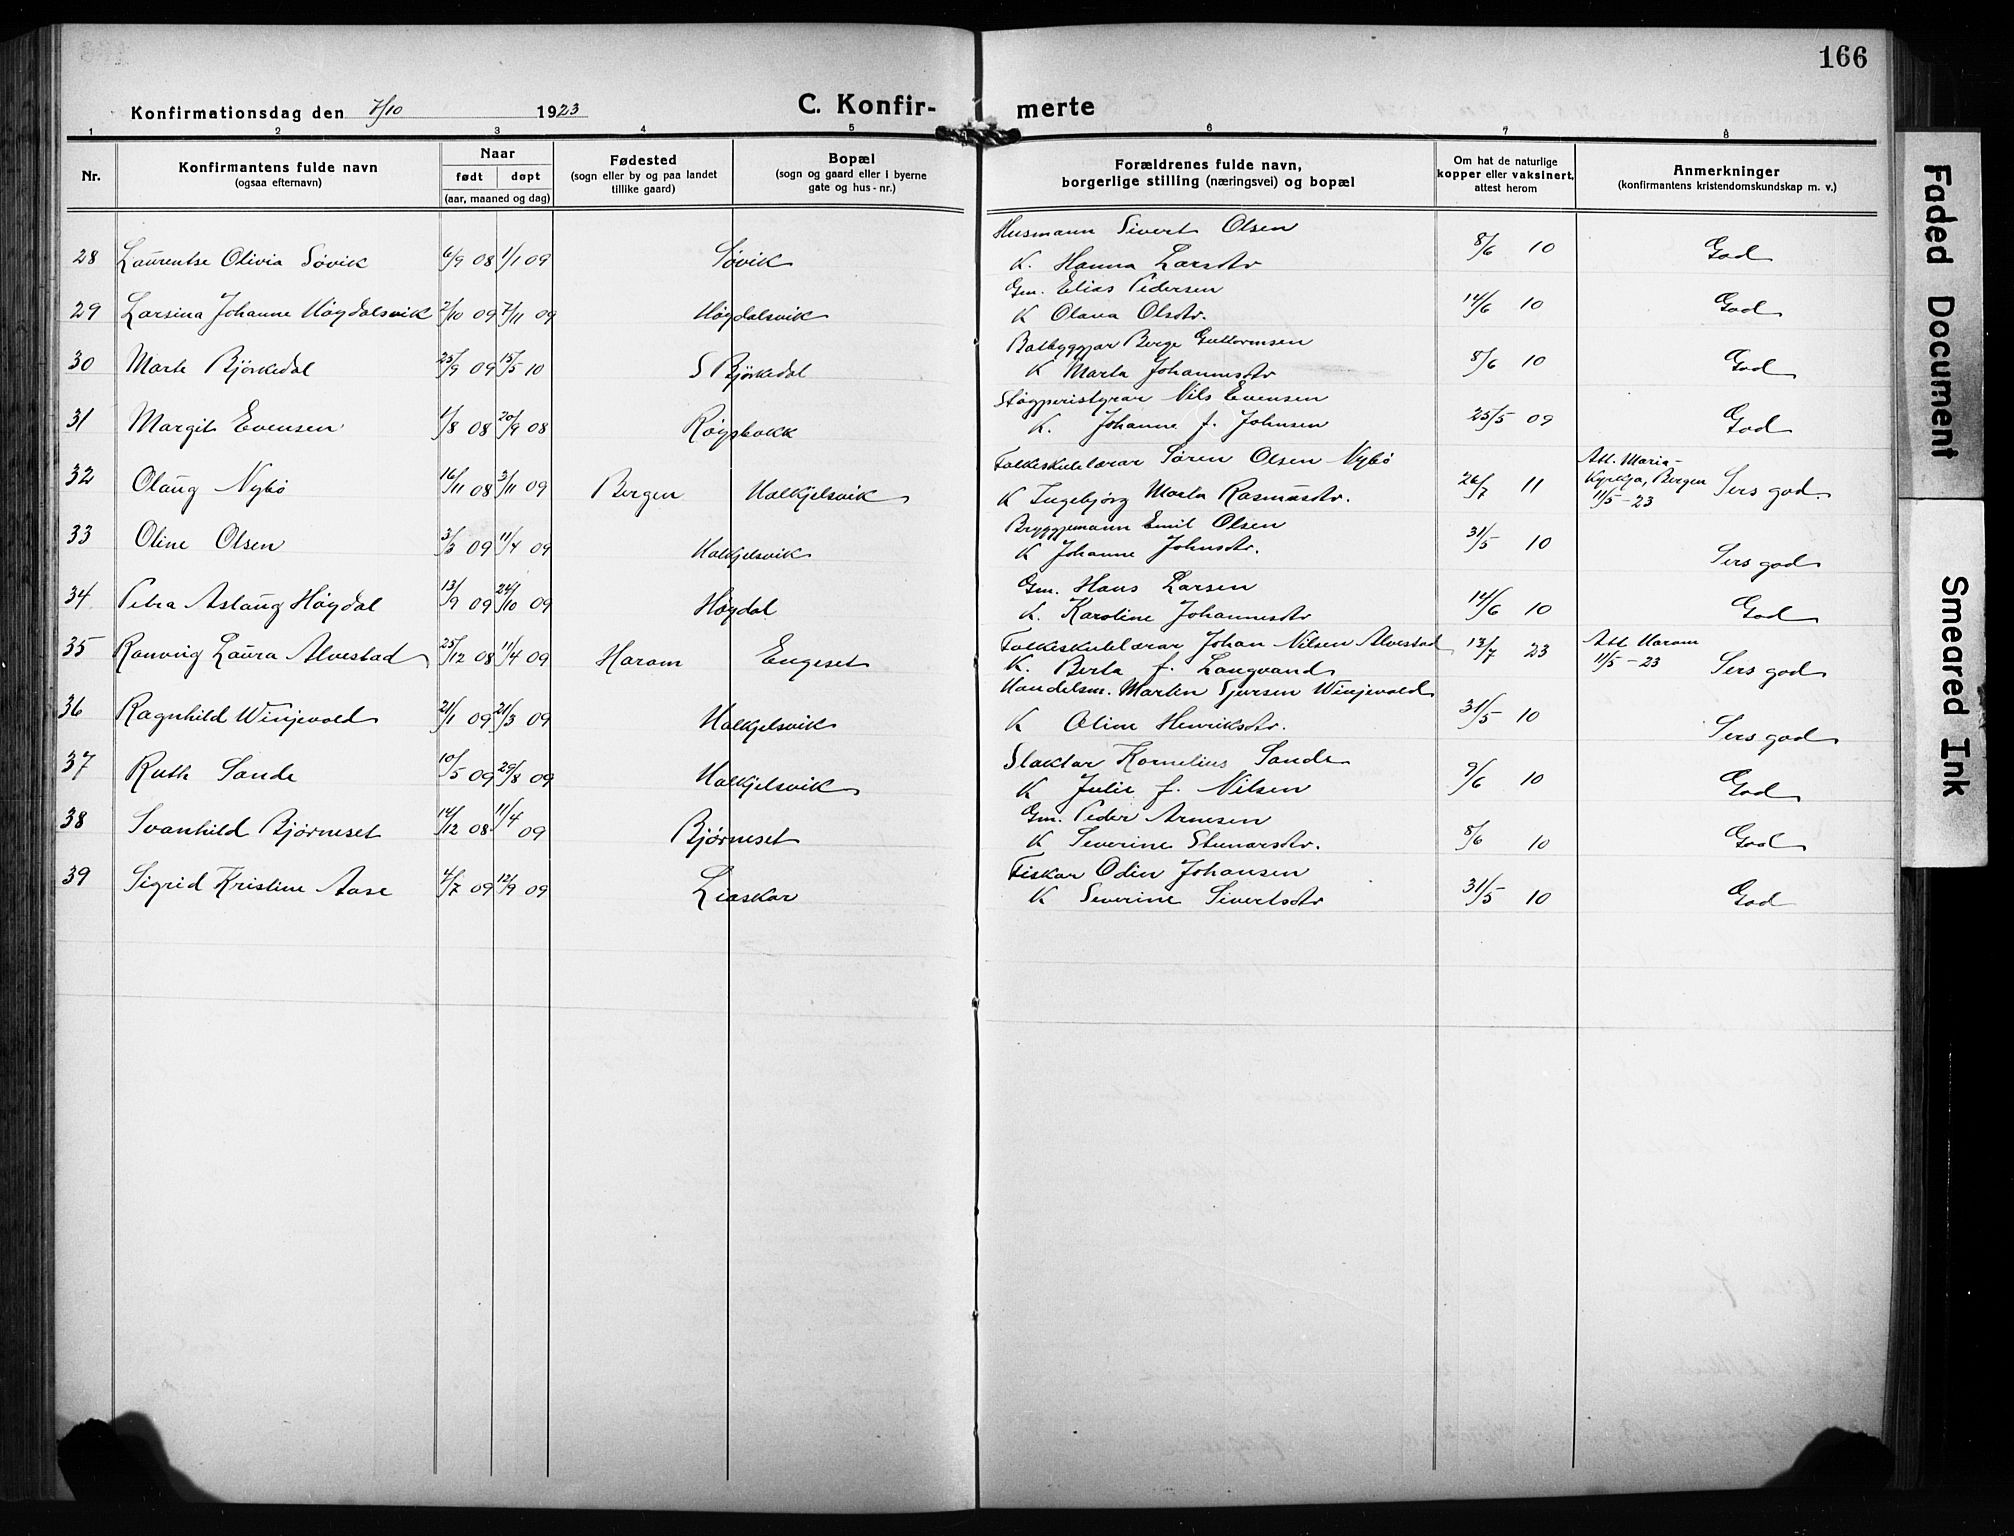 166
Konfirmationsdag den 7/10 1923
C. Konfir-merte
1 2 3 4 5 6 7 8
Nr.
Konfirmantens fulde navn
(ogsaa efternavn)
Naar
født døpt
(aar, maaned og dag)
Fødested
(sogn eller by og paa landet
tillike gaard)
Bopæl
(sogn og gaard eller i byerne
gate og hus-nr.)
Forældrenes fulde navn,
borgerlige stilling (næringsvei) og bopæl
Om hat de naturlige
kopper eller vaksinert,
attest herom
Anmerkninger
(konfirmantens kristendomskundskap m. v.)
Husmann Sivert Olsen
28 Laurentse Olivia Søvik 6/9 08 1/1 09 Søvik K. Hanna Larsdtr 8/6 10 God
Gm. Elias Pedersen
29 Larsina Johanne Høgdalsvik 2/10 09 7/11 09 Høgdalsvik K Olava Olsdtr. 14/6 10 God
Batbyggjar Berge Guttormsen
30 Marte Bjørkedal 25/9 09 15/5 10 S Bjørkedal K Marta Johannesdtr 8/6 10 God
Støyperistyrar Nils Evensen
31 Margit Evensen 1/8 08 20/9 08 K. Johanne f. Johnsen 25/5 09 God
Folkeskulelærar Søren Olsen Nybø
Att. Maria-
32 Olaug Nybø 16/11 08 3/11 09 Bergen Halkjelsvik K Ingebjørg Marta Rasmusdtr. 26/7 11 Kyrkja, Bergen 11/5-23 Sers god.
Bryggjemann Emil Olsen
33 Oline Olsen 3/3 09 11/4 09 Halkjelsvik K Johanne Johnsdtr. 31/5 10 Sers god
Gm. Hans Larsen
34 Petra Aslaug Høydal 13/9 09 24/10 09 Høydal K. Karoline Johannesdtr 14/6 10 God
Folkeskulelærar Johan Nilsen Alvestad
35 Ranveig Laura Alvestad 25/12 08 11/4 09 Haram Engeset K. Berta f. Langvand 13/7 23 Att Haram 11/5-23 Sers god
Handelsm. Martin Sjursen Winjevold
36 Ragnhild Winjevold 21/1 09 21/3 09 Halkjelsvik K Oline Henriksdtr. 31/5 10 Sers god
Slaktar Kornelius Sande
37 Ruth Sande 10/5 09 29/8 09 Halkjelsvik K Julie f. Nilsen 9/6 10 God
Gm. Peder Arnesen
38 Svanhild Bjørneset 14/12 08 11/4 09 Bjørneset K Severine Steinarsdtr. 8/6 10 God
Fiskar Odin Johansen
39 Sigrid Kristine Aase 4/7 09 12/9 09 Liaskar K Severine Sivertsdtr 31/5 10 God
Faded Document
Smeared Ink